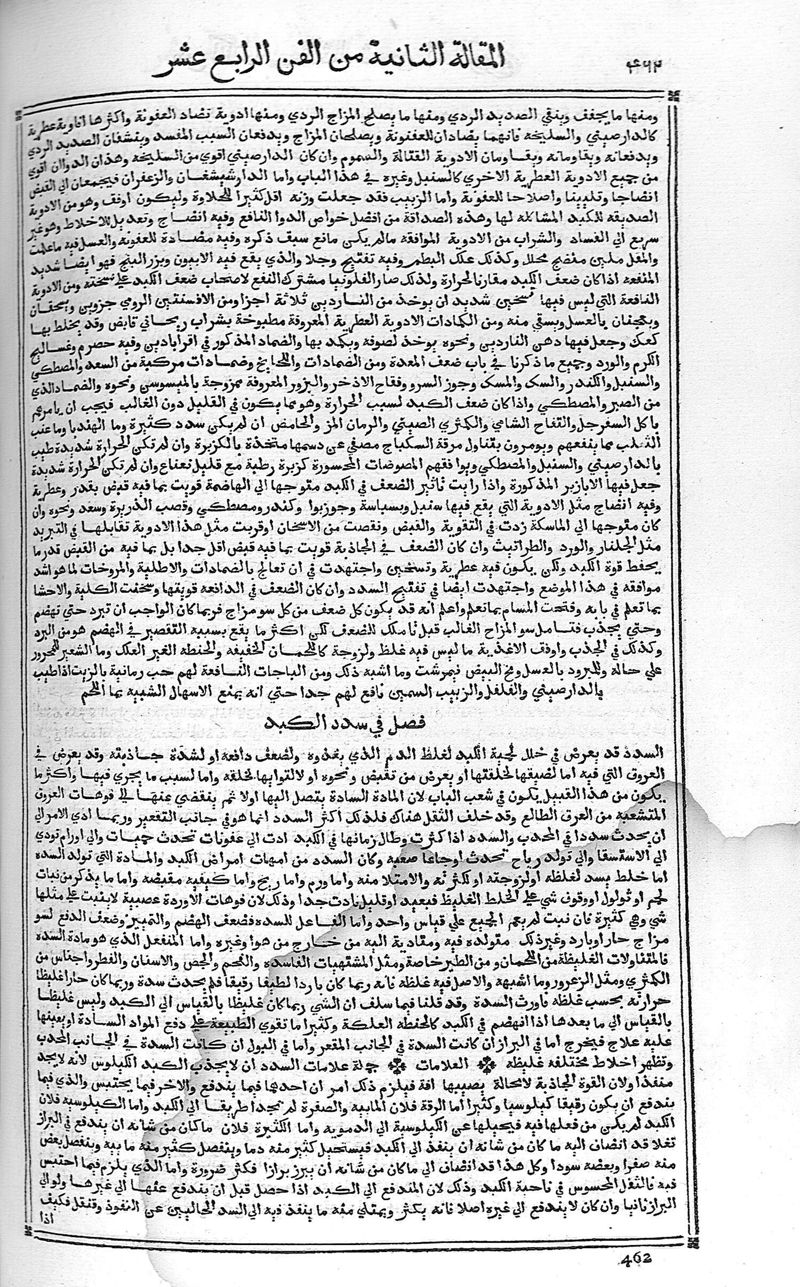 ٤٦٢ المقالة الثانية من الفن الرابع عشر
ومنها ما يجفف وينقي الصديد الردي ومنها ما يصلح المزاج الردي ومنها ادوية تضاد العفونة واكثرها افاوية عطرية
كالدارصيني والسليخة فانهما يضادان للعفونة ويصلحان المزاج ويدفعان السبب المفسد وينشفان الصديد الردي
ويدفعانه ويقاومانه ويقاومان الادوية القتالة والسموم وان كان الدارصيني اقوي من السليخة وهذان الدوآن اقوي
من جميع الادوية العطرية الاخري كالسنبل وغيره في هذا الباب واما الدارشيشغان والزعفران فيجمعان الي القبض
انضاجا وتليينا واصلاحا للعفونة واما الزبيب فقد جعلت وزنه اقل كثيرا للحلاوة وليكون اوفق وهو من الادوية
الصديقة للكبد المشاكلة لها وهذه الصداقة من افضل خواص الدوا النافع وفيه انضاج وتعديل للاخلاط وهو غير
سريع الي الفساد والشراب من الادوية الموافقة ما لم يكن مانع سبق ذكره وفيه مضادة للعفونة والعسل فيه ما علمت
والمقل ملين منضج محلل وكذلك علك البطم وفيه تفتيح وجلا والذي يقع فيه الافيون وبزر البنج فهو ايضا شديد
المنفعة اذا كان ضعف الكبد مقارنا لحرارة ولذلك صار الفلونيا مشترك النفع لاصحاب ضعف الكبد علي نسخته ومن الادوية
النافعة التي ليس فيها تسخين شديد ان يوخذ من الناردين ثلاثة اجزا ومن الافسنتين الرومي جزوين ويسحقان
ويعجنان بالعسل ويسقي منه ومن الكمادات الادوية العطرية المعروفة مطبوخة بشراب ريحاني قابض وقد يخلط بها
كعك وجعل فيها دهن الناردين ونحوه يوخذ لصوفة ويكمد بها والضماد المذكور في اقراباذين وفيه حصرم وعساليج
الكرم والورد وجميع ما ذكرنا في باب ضعف المعدة ومن الضمادات واللخالخ وضمادات مركبة من السعد والمصطكي
والسنبل والكندر والسك والمسك وجوز السرو وفقاح الاذخر والبزور المعروفة ممزوجة بالميسوسن ونحوه والضماد الذي
من الصبر والمصطكي واذا كان ضعف الكبد لسبب الحرارة وهو مما يكون في القليل دون الغالب فيجب ان يامرهم
باكل السفرجل والتفاح الشامي والكمثري الصيني والرمان المز والحامض ان لم يكن سدد كثيرة وما الهنديا وما عنب
الثعلب مما ينفعهم ويومرون بتناول مرقة السكباج مصفي عن دسمها متخذة بالكزبرة وان لم تكن الحرارة شديدة طيب
بالدارصيني والسنبل والمصطكي ويوافقهم المصوصات المحسورة كزبرة رطبة مع قليل نعناع وان لم تكن الحرارة شديدة
جعل فيها الابازير المذكورة واذا رايت تاثير الضعف في الكبد متوجها الي الهاضمة قويت بما فيه قبض بقدر وعطرية
وفيه انضاج مثل الادوية التي يقع فيها سنبل وبسباسة وجوزبوا وكندر ومصطكي وقصب الذريرة وسعد ونحوه وان
كان متوجها الي الماسكة زدت في التقوية والقبض ونقصت من الاسخان او قربت مثل هذا الادوية تقابلها في التبريد
مثل الجلنار والورد والطراثيث وان كان الضعف في الجاذبة قويت بما فيه قبض اقل جدا بل بما فيه من القبض قدر ما
يحفظ قوة الكبد ولكن يكون فيه عطرية وتسخين واجتهدت في ان تعالج بالضمادات والاطلية والمروخات لما هو اشد
موافقه في هذا الموضع واجتهدت ايضا في تفتيح السدد وان كان الضعف في الدافعة قويتها وسخنت الكلية والاحشا
بما تعلم في بابه وفتحت المسام بما تعلم واعلم انه قد يكون كل ضعف من كل سو مزاج فربما كان الواجب ان تبرد حتي تهضم
وحتي يجذب فتامل سو المزاج الغالب قبل تاملك للضعف لكن اكثر ما يقع بسببه التقصير في الهضم هو من البرد
وكذلك في الجذب واوفق الاغذية ما ليس فيه غلظ ولزوجة كاللحمان الخفيفه والحنطه الغير العلك وما الشعير للمحرور
علي حاله وللمبرود بالعسل ومخ البيض نيمرشت وما اشبه ذلك ومن الباجات النافعة لهم حب رمانية بالزبيب اذا طيب
بالدارصيني والفلفل والزبيب السمين نافع لهم جدا حتي انه يمنع الاسهال الشبيه بما اللحم
فصل في سدد الكبد
السدد قد يعرض في خلل لحمية الكبد لغلظ الدم الذي يغذوه ولضعف دافعة او لشدة جاذبته وقد يعرض في
العروق التي فيه اما لضيقها لخلقتها او يعرض من تقبض ونحوه او لالتوا بها لخلقه واما لسبب ما يجري فيها واكثر ما
يكون من هذا القبيل يكون في شعب الباب لان المادة السادة يتصل اليها اولا ثم ينقضي عنها الي فوهات العروق
المتشعبة من العرق الطالع وقد خلف الثقل هناك فلذلك اكثر السدد انما هو في جانب التقعير وربما ادي الامر الي
ان يحدث سددا في المحدب والسدد اذا كثرت وطال زمانها في الكبد ادت الي عفونات تحدث حميات والي اورام تودي
الي الاستسقا والي تولد رياح تحدث اوجاعا صعبة وكان السدد من امهات امراض الكبد والمادة التي تولد السده
اما خلط يسد لغلظه او لزوجته او لكثرته والامتلا منه واما ورم واما ريح واما كيفيه مقبضه واما ما يذكر من نبات
لحم او ثولول او وقوف شي علي الخلط الغليظ فبعيد او قليل نادت جدا وذلك لان فوهات الاوردة عصبية لا ينبت علي مثلها
شي وهي كثيرة فان نبت لم يعم الجميع علي قياس واحد واما الفاعل للسده فضعف الهضم والتمييز وضعف الدفع لسو
مزاج حار او بارد وغير ذلك متولده فيه ومتادية اليه من خارج من هوا وغيره واما المنفعل الذي هو مادة السده
فالمتناولات الغليظة من اللحمان ومن الطير خاصة ومثل المشتهيات الفاسده والفحم والجص والاشنان والفطر واجناس من
الكمثري ومثل الزعرور وما اشبهه والاصل فيه غلظه فانه ربما كان باردا لطيفا رقيقا فلم يحدث سدة وربما كان حارا غليظا
حرارته بحسب غلظه فاورث السدة وقد قلنا فيما سلف ان الشي ربما كان غليظا بالقياس الي الكبد وليس غليظا
بالقياس الي ما بعدها اذا انهضم في الكبد كالحنطه العلكة وكثيرا ما تقوي الطبيعة علي دفع المواد السادة او يعينها
عليه علاج فيخرج اما في البراز ان كانت السدة في الجانب المقعر واما في البول ان كانت السدة في الجانب المحدب
وتظهر اخلاط مختلفه غليظه ❋ العلامات ❋ جملة علامات السدد ان لا يجذب الكبد الكيلوس لانه لا يجد
منفذا ولان القوة الجاذبة لا محالة يصيبها افة فيلزم ذلك امر ان احدهما فيما يندفع والاخر فيما يحتبس والذي فيما
يندفع ان يكون رقيقا كيلوسيا وكثيرا اما الرقة فلان المايية والصفرة لم يجدا طريقا الي الكبد واما الكيلوسيه فلان
الكبد لم يكن من فعلها فيه فيحيلها عن الكيلوسية الي الدمويه واما الكثيرة فلان ما كان من شانه ان يندفع في البراز
ثفلا قد انضاف اليه ما كان من شانه ان ينفذ الي الكبد فيستحيل كثير منه دما وينفصل كثير منه مايية وينفصل بعض
منه صفرا وبعضه سودا وكل هذا قد انضاف الي ما كان من شانه ان يبرز برازا فكثر ضرورة واما الذي يلزم فيما احتبس
فيه فالثقل المحسوس في ناحية الكبد وذلك لان المندفع الي الكبد اذا حصل قبل ان يندفع عنها الي غيرها ولو الي
البراز ثانيا وان كان لا يندفع الي غيره اصلا فانه يكثر ويمتلي منه ما ينفذ فيه الي السد الحاليين عن النفوذ وتثقل فكيف
اذا
462